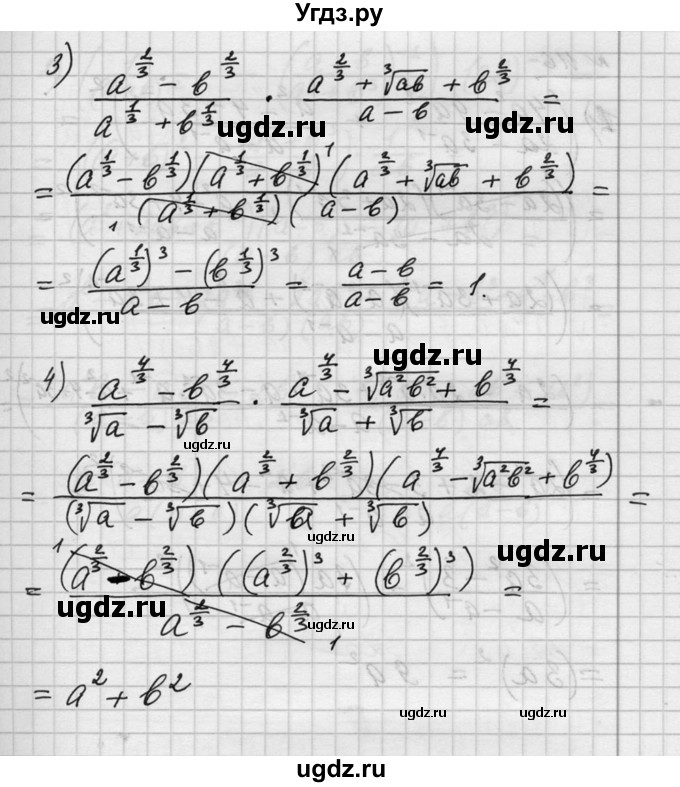 Угдз.ру
3) (a^(2/3) − b^(2/3))/(a^(1/3) + b^(1/3)) · (a^(2/3) + ∛ab + b^(2/3))/(a − b) =
ugdz.ru ugdz.ru
= ((a^(1/3) − b^(1/3))(a^(1/3) + b^(1/3))^1 (a^(2/3) + ∛ab + b^(2/3)))/(1 (a^(1/3) + b^(1/3))(a − b)) =
= ((a^(1/3))^3 − (b^(1/3))^3)/(a − b) = (a − b)/(a − b) = 1.
ugdz.ru
ugdz.ru
4) (a^(4/3) − b^(4/3))/(∛a − ∛b) · (a^(4/3) − ∛(a²b²) + b^(4/3))/(∛a + ∛b) =
ugdz.ru
= ((a^(2/3) − b^(2/3))(a^(2/3) + b^(2/3))(a^(4/3) − ∛(a²b²) + b^(4/3)))/((∛a − ∛b)(∛a + ∛b)) =
ugdz.ru
= (1 (a^(2/3) − b^(2/3)) ((a^(2/3))^3 + (b^(2/3))^3))/(a^(2/3) − b^(2/3) 1) =
ugdz.ru ugdz.ru
= a² + b²
ugdz.ru ugdz.ru
ugdz.ru